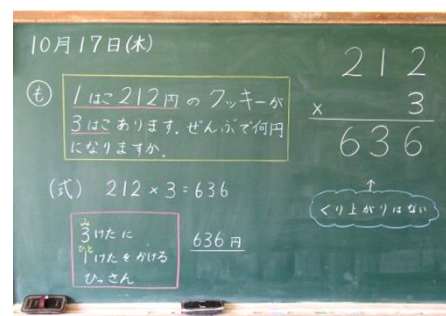 10月17日(木)
も 1はこ212円のクッキーが
3はこあります。ぜんぶで何円
になりますか。
(式) 212×3=636
み
3けたに
ひと
1けたをかける
ひっさん
636円
212
× 3
636
↑
くり上がりはない